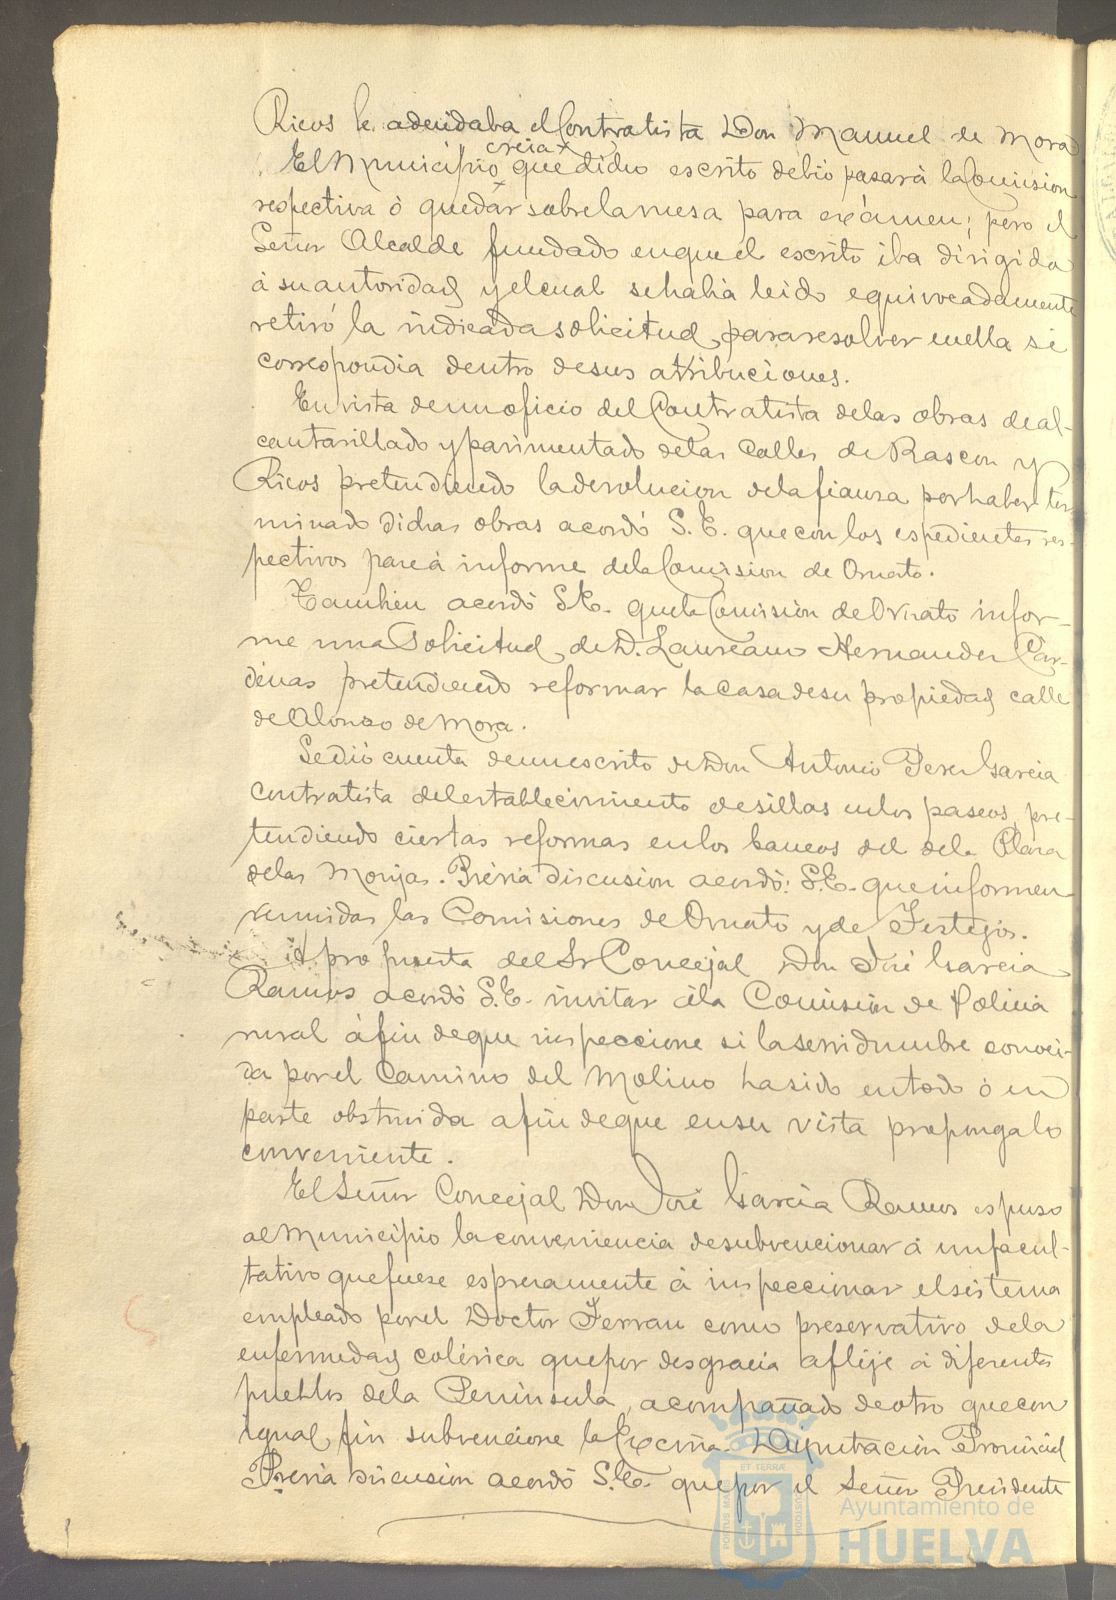 Ricos le adeudaba el Contratista Don Manuel de Mora
creia x
El Municipio que dicho escrito debió pasar á la Comision
respectiva ó quedar sobre la mesa para exámen; pero el
Señor Alcalde fundado en que el escrito iba dirigido
á su autoridad y el cual se habia leido equivocadamente
retiró la indicada solicitud, para resolver en ella si
correspondia dentro de sus atribuciones.
En vista de un oficio del Contratista de las obras de al-
cantarillado y pavimentado de las calles de Rascon y
Ricos pretendiendo la devolucion de la fianza por haber ter-
minado dichas obras acordó S.E. que con los espedientes res-
pectivos pase á informe de la Comision de Ornato.
Tambien acordó S.E. que la Comision de Ornato infor-
me una Solicitud de D. Laureano Hernandez Cár-
denas pretendiendo reformar la casa de su propiedad calle
de Alonzo de Mora.
Se dió cuenta de un escrito de Don Antonio Perez Garcia
contratista del establecimiento de sillas en los paseos, pre-
tendiendo ciertas reformas en los bancos del de la Plaza
de las Monjas. Prévia discusion acordó: S.E. que informen
reunidas las Comisiones de Ornato y de Festejos.
A propuesta del Sr Concejal Don José Garcia
Ramos acordó S.E. invitar á la Comision de Policia
rural á fin de que inspeccione si la servidumbre conoci-
da por el Camino del Molino ha sido en todo ó en
parte obstruida a fin de que en su vista proponga lo
conveniente.
El Señor Concejal Don José Garcia Ramos espuso
al Municipio la conveniencia de subvencionar á un facul-
tativo que fuese espresamente á inspeccionar el sistema
empleado por el Doctor Ferran como preservativo de la
enfermedad colérica que por desgracia aflije á diferentes
pueblos de la Península, acompañado de otro que con
igual fin subvencione la Excma. Diputacion Provincial
Prévia discusion acordó S.E. que por el Señor Presidente
Ayuntamiento de
HUELVA